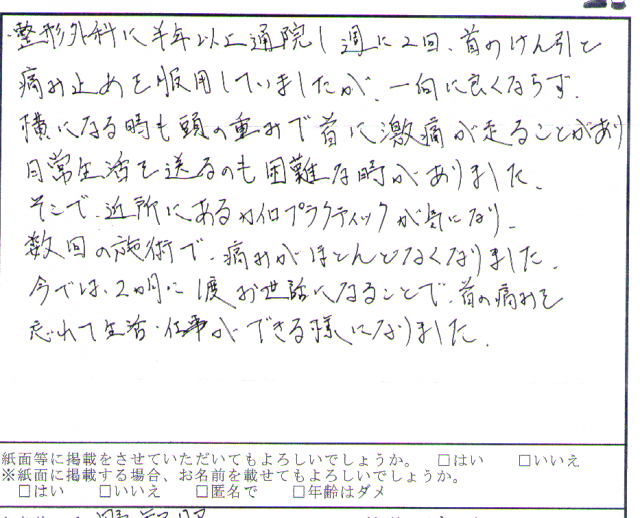 整形外科に半年以上通院し週に2回、首のけん引と
痛み止めを服用していましたが、一向に良くならず、
横になる時も頭の重みで首に激痛が走ることがあり
日常生活を送るのも困難な時がありました。
そこで、近所にあるカイロプラクティックが気になり、
数回の施術で、痛みがほとんどなくなりました。
今では、2か月に1度お世話になることで、首の痛みを
忘れて生活・仕事ができる様になりました。
紙面等に掲載をさせていただいてもよろしいでしょうか。 □はい □いいえ
※紙面に掲載する場合、お名前を載せてもよろしいでしょうか。
□はい □いいえ □匿名で □年齢はダメ